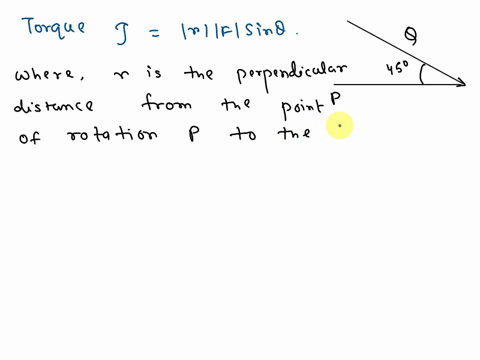 Torque τ = |r||F|sinθ.
where, r is the perpendicular
distance from the point
of rotation P to the
θ
45°
P